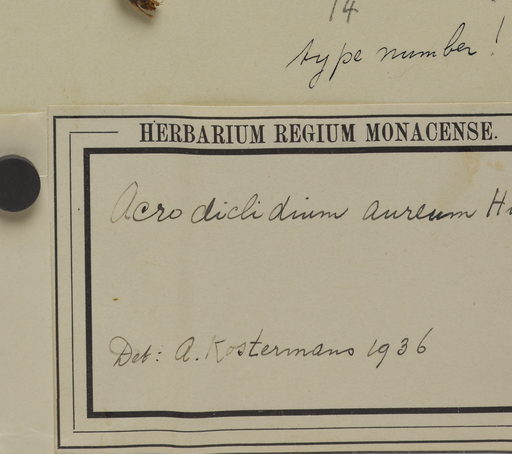 14
type number!
HERBARIUM REGIUM MONACENSE.
Acrodiclidium aureum
Det: A. Kostermans 1936